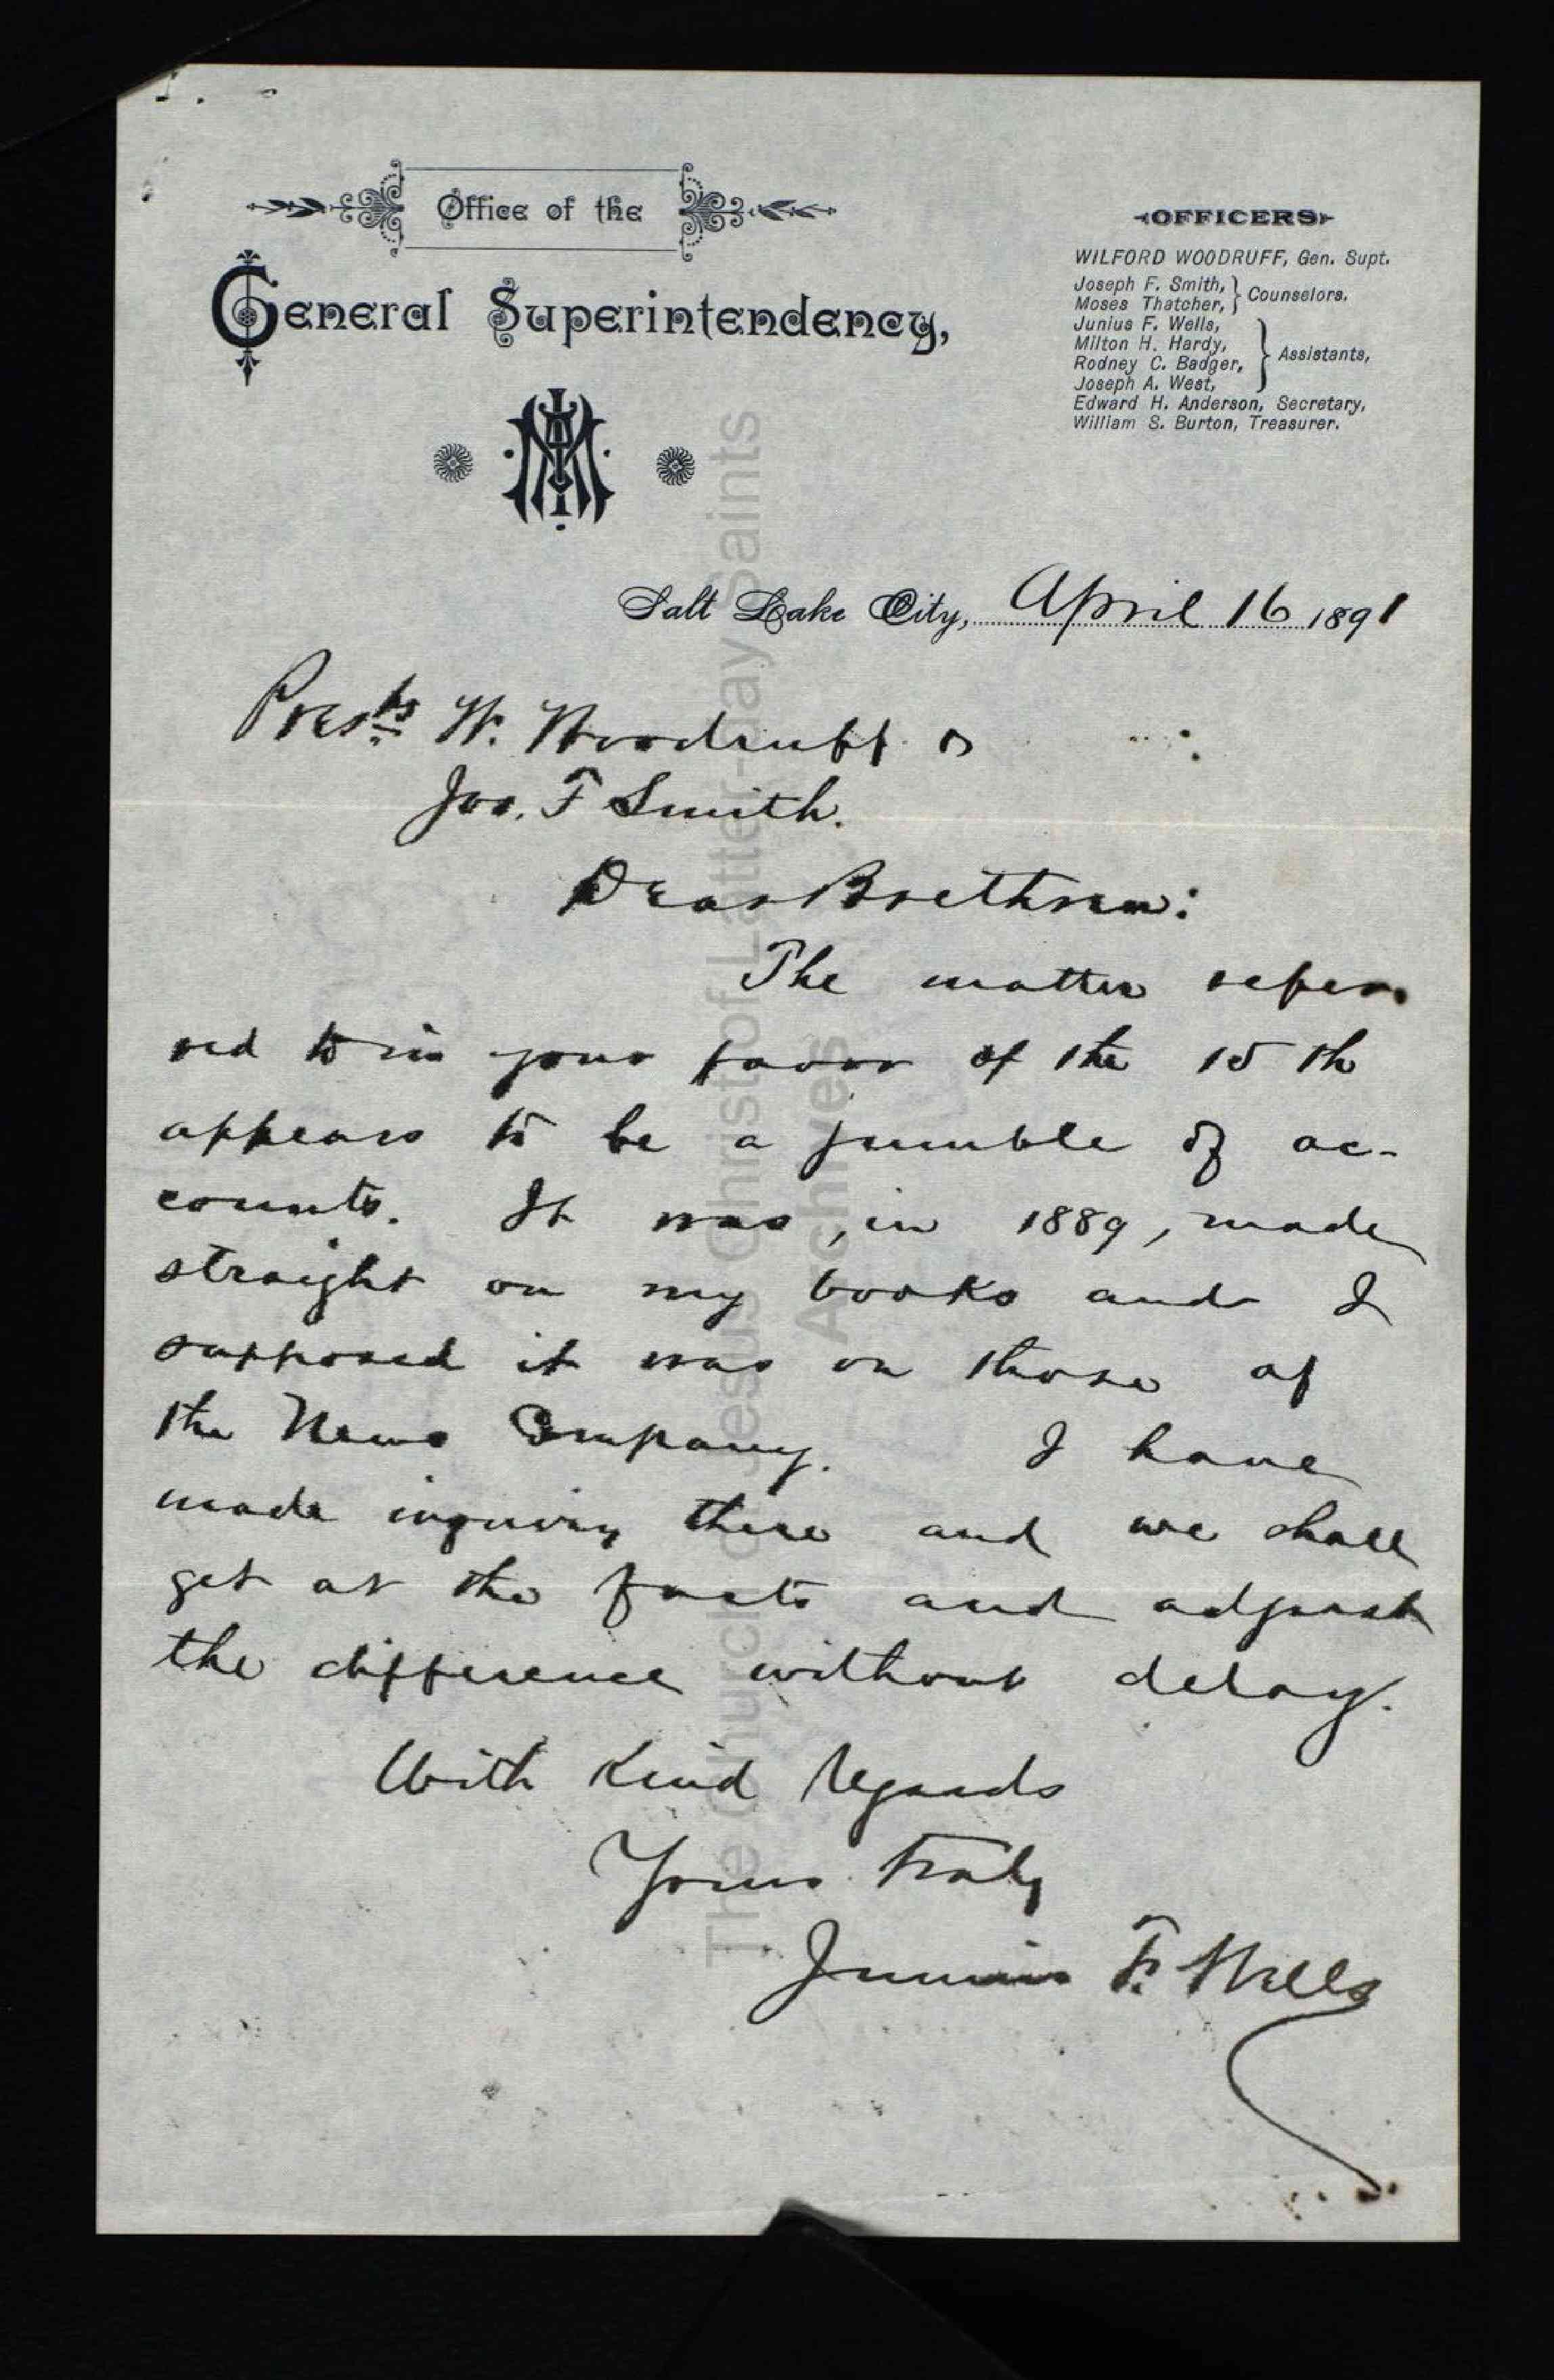 Office of the
General Superintendency,
YMMIA
OFFICERS
WILFORD WOODRUFF, Gen. Supt.
Joseph F. Smith, } Counselors.
Moses Thatcher,
Junius F. Wells,
Milton H. Hardy, } Assistants,
Rodney C. Badger,
Joseph A. West,
Edward H. Anderson, Secretary,
William S. Burton, Treasurer.
Salt Lake City, April 16 1891
Prests W. Woodruff &
Jos. F Smith.
Dear Brethren:
The matter refer-
red to in your favor of the 15th
appears to be a jumble of ac-
counts. It was, in 1889, made
straight on my books and I
supposed it was on those of
the News Company. I have
made inquiry there and we shall
get at the facts and adjust
the difference without delay.
With Kind Regards
Yours Truly
Junius F. Wells
The Church of Jesus Christ of Latter-day Saints
Archives